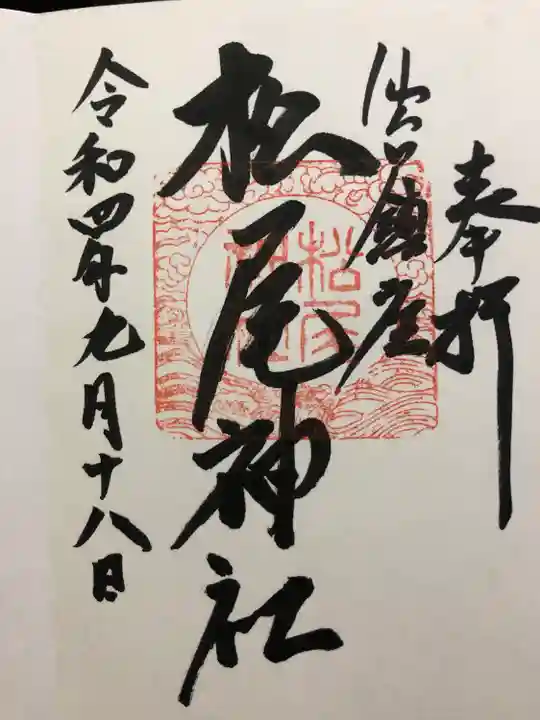 奉拝
鎮座
松尾神社
松尾
令和四年九月十八日